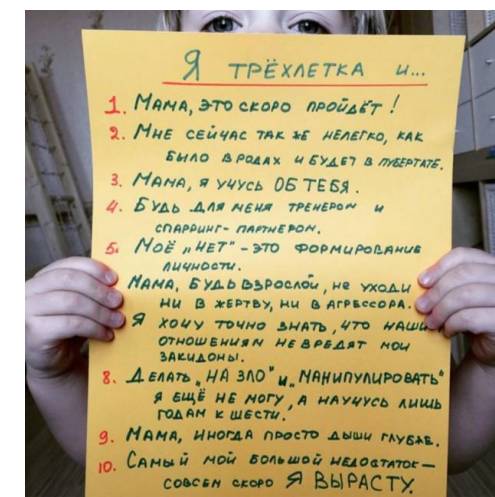 Я ТРЁХЛЕТКА и...
1. МАМА, ЭТО СКОРО ПРОЙДЁТ!
2. МНЕ СЕЙЧАС ТАК ЖЕ НЕЛЕГКО, КАК
БЫЛО В РОДАХ И БУДЕТ В ПУБЕРТАТЕ.
3. МАМА, Я УЧУСЬ ОБ ТЕБЯ.
4. БУДЬ ДЛЯ МЕНЯ ТРЕНЕРОМ И
СПАРРИНГ-ПАРТНЕРОМ.
5. МОЁ „НЕТ" - ЭТО ФОРМИРОВАНИЕ
ЛИЧНОСТИ.
МАМА, БУДЬ ВЗРОСЛОЙ, НЕ УХОДИ
НИ В ЖЕРТВУ, НИ В АГРЕССОРА.
Я ХОЧУ ТОЧНО ЗНАТЬ, ЧТО НАШИМ
ОТНОШЕНИЯМ НЕ ВРЕДЯТ МОИ
ЗАКИДОНЫ.
8. ДЕЛАТЬ „НА ЗЛО" и „МАНИПУЛИРОВАТЬ"
Я ЕЩЁ НЕ МОГУ, А НАУЧУСЬ ЛИШЬ
ГОДАМ К ШЕСТИ.
9. МАМА, ИНОГДА ПРОСТО ДЫШИ ГЛУБЖЕ.
10. САМЫЙ МОЙ БОЛЬШОЙ НЕДОСТАТОК —
СОВСЕМ СКОРО Я ВЫРАСТУ.